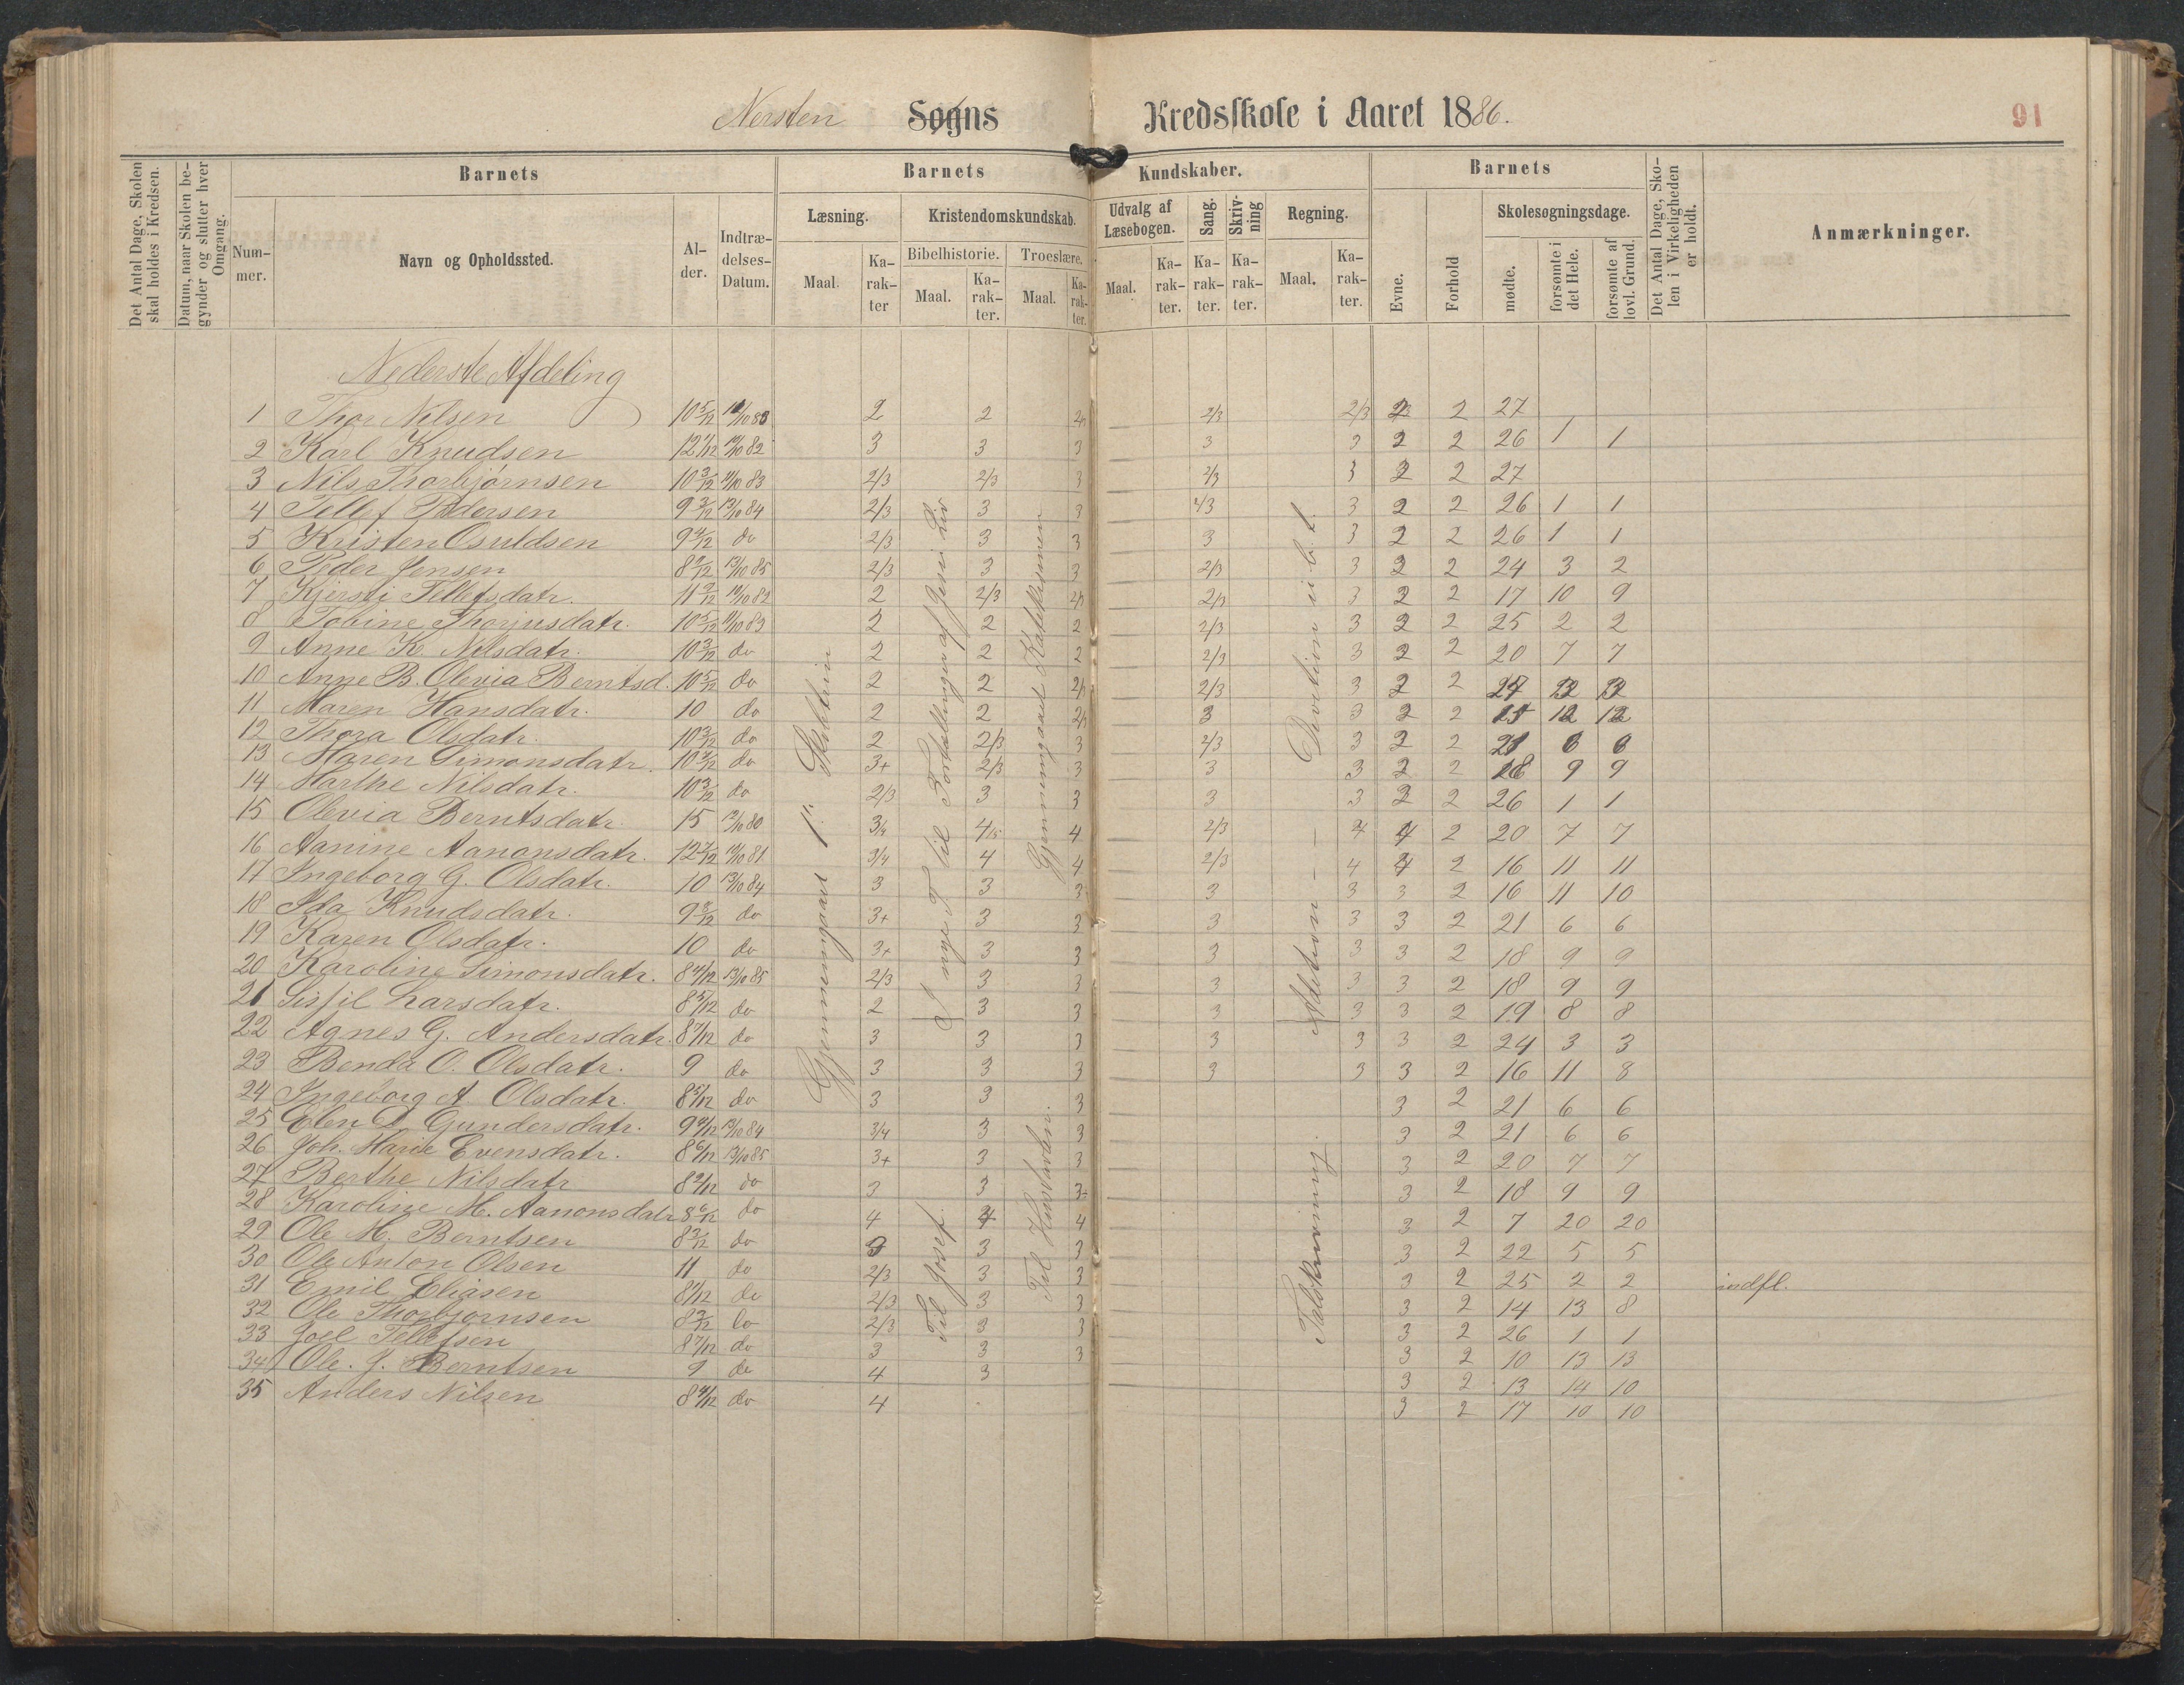 Nersten Sogns Kredsskole i Aaret 1886.
91
Det Antal Dage, Skolen skal holdes i Kredsen.
Datum, naar Skolen begynder og slutter hver Omgang.
Barnets
Nummer.
Navn og Opholdssted.
Alder.
Indtrædelses-Datum.
Barnets Kundskaber.
Læsning.
Maal.
Karakter
Kristendomskundskab.
Bibelhistorie.
Maal.
Karakter.
Troeslære.
Maal.
Karakter.
Udvalg af Læsebogen.
Maal.
Karakter.
Sang.
Karakter.
Skrivning
Karakter.
Regning.
Maal.
Karakter.
Barnets
Evne.
Forhold
Skolesøgningsdage.
mødte.
forsømte i det Hele.
forsømte af lovl. Grund.
Det Antal Dage, Skolen i Virkeligheden er holdt.
Anmærkninger.
Nederste Afdeling
1 Thor Nilsen 10 5/12 2 2 2/3 2/3 2 27
2 Karl Knudsen 12 1/12 3 3 3 3 3 2 2 26 1 1
3 Nils Thorbjørnsen 10 3/12 2/3 2/3 3 2/3 3 2 2 27
4 Tellef Pedersen 9 3/12 13/10 84 2/3 3 3 2/3 3 2 2 26 1 1
5 Kristen Osuldsen do 2/3 3 3 3 3 2 2 26 1 1
6 Peder Jensen 13/10 85 2/3 3 3 2/3 3 2 2 24 3 2
7 Kjersti Tellefsdatr. 2 2/3 2/3 3 2 2 17 10 9
8 Tobine Thorjusdatr. 10 5/12 2 2 2 2/3 3 2 2 25 2 2
9 Anne K. Nilsdatr. 10 3/12 do 2 2 2 2/3 3 2 2 20 7 7
10 Anne B. Olevia Berntsd. 10 5/12 do 2 2 2/3 3 2 2
11 Maren Hansdatr. 10 do 2 2 3 3 2 2 15 12 12
12 Thora Olsdatr. 10 3/12 do 2 2/3 3 2/3 3 2 2 21 6 6
13 Maren Simonsdatr. do 3+ 2/3 3 3 3 2 2 18 9 9
14 Marthe Nilsdatr. 10 3/12 do 2/3 3 3 3 3 2 2 26 1 1
15 Olevia Berntsdatr. 15 12/10 80 3/4 4 2/3 4 4 2 20 7 7
16 Aanine Aanonsdatr. 3/4 4 4 2/3 4 4 2 16 11 11
17 Ingeborg G. Olsdatr. 10 13/10 84 3 3 3 3 3 3 2 16 11 10
18 Ida Knudsdatr. do 3+ 3 3 3 3 3 2 21 6 6
19 Karen Olsdatr. 10 do 3+ 3 3 3 3 3 2 18 9 9
20 Karoline Simonsdatr. 8 4/12 13/10 85 2/3 3 3 3 3 3 2 18 9 9
21 Sisfil Larsdatr. 8 5/12 do 2 3 3 3 3 3 2 19 8 8
22 Agnes G. Andersdatr. 8 7/12 do 3 3 3 3 3 3 2 24 3 3
23 Benda O. Olsdatr. 9 do 3 3 3 3 3 3 2 16 11 8
24 Ingeborg A. Olsdatr. 8 5/12 do 3 3 3 3 2 21 6 6
25 Elen D. Gundersdatr. 13/10 84 3/4 3 3 3 2 21 6 6
26 Joh. Marie Evensdatr. 8 6/12 13/10 85 3+ 3 3 3 2 20 7 7
27 Berthe Nilsdatr do 3 3 3 2 18 9 9
28 Karoline M. Aanonsdatr 8 6/12 do 4 4 4 3 2 7 20 20
29 Ole M. Berntsen do 3 3 3 3 2 22 5 5
30 Ole Anton Olsen 11 do 2/3 3 3 3 2 25 2 2 indfl.
31 Emil Eliasen do 2/3 3 3 3 2 14 13 8
32 Ole Thorbjørnsen do 2/3 3 3 3 2 26 1 1
33 Joel Tellefsen 8 7/12 do 3 3 3 3 2 10 13 13
34 Ole. J. Berntsen 9 do 4 3 3 2 13 14 10
35 Anders Nilsen do 4 3 2 17 10 10
Gjennemgaaet 1ste Skoletrin
I nye T. til Fortællinger af Jesu Liv
Til Josef.
Gjennemgaaet Katekismen
Til Hustavlen.
Addition
Talskrivning.